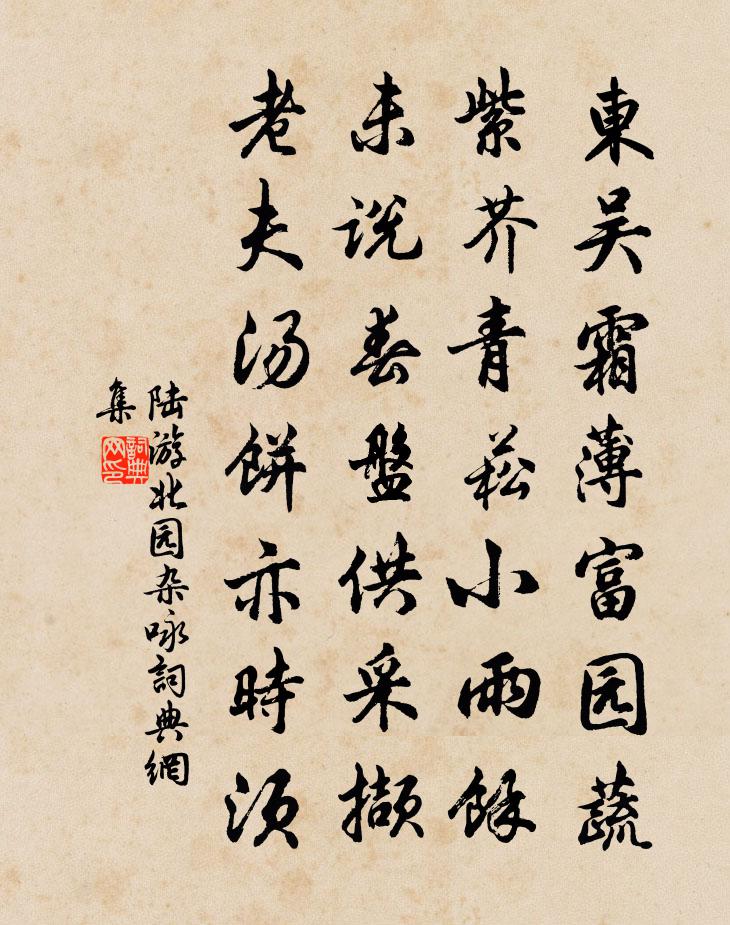 東吴霜薄富园蔬
紫芥青菘小雨餘
未说春盤供采撷
老夫汤餅亦時须
陆游北园杂咏詞典網
集
詞典网印